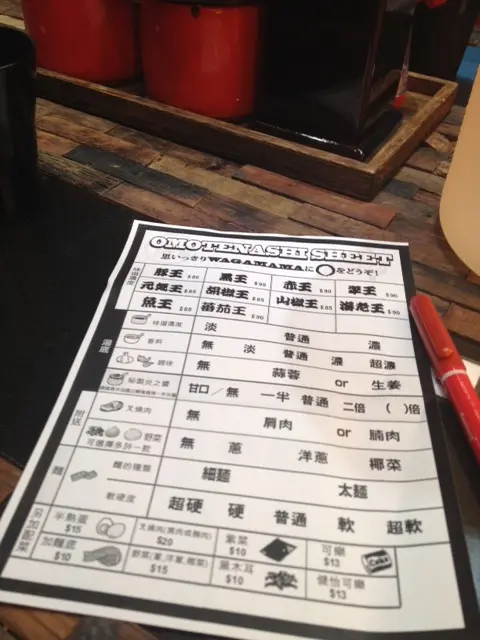 OMOTENASHI SHEET
思いっきりWAGAMAMAに〇をどうぞ!
豚王 $80 黒王 $90 赤王 $90 翠王 $90
胡椒王 $85 山椒王 $85 海老王 $90
魚王 $85 蕃茄王 $90
湯底
味道濃度 淡 普通 濃
香料 無 淡 普通 濃 超濃
調味 無 蒜蓉 or 生姜
秘製炎之醬 甘口/無 一半 普通 二倍 ( )倍
附送
叉燒肉 無 肩肉 or 腩肉
野菜 可選擇多過一款 無 蔥 洋蔥 椰菜
麵
麵的種類 細麵 太麵
軟硬度 超硬 硬 普通 軟 超軟
另加配菜
半熟蛋 $15 叉燒肉(肩肉或腩肉) $20 紫菜 $10 可樂 $13 Coke
加麵底 $10 野菜(蔥,洋蔥,椰菜) $15 黑木耳 $10 健怡可樂 $13